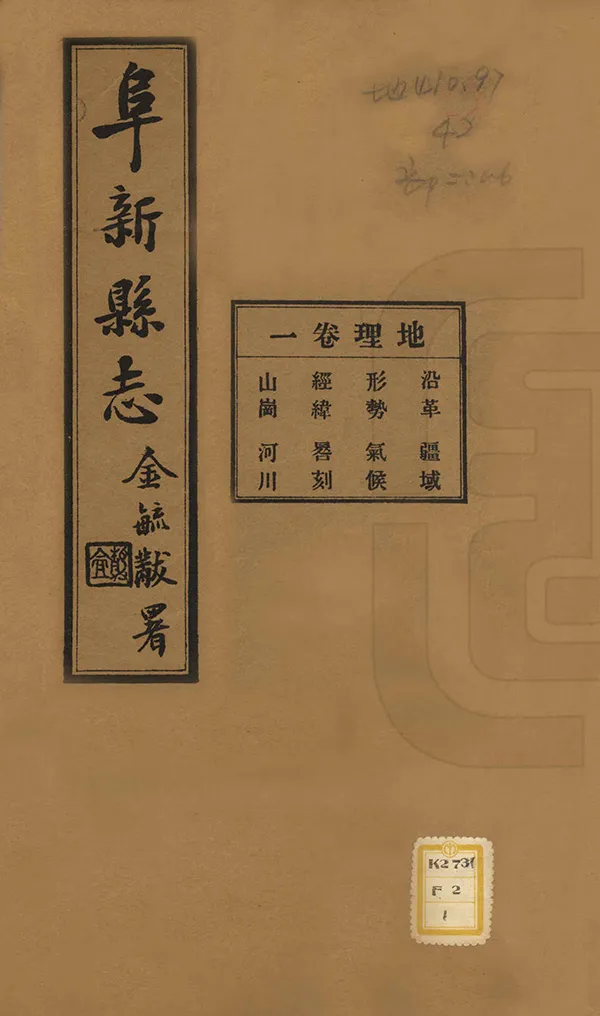 阜新縣志
金毓黻署
地理卷一
沿革 疆域
形勢 氣候
經緯 晷刻
山崗 河川
42
K2 731
F 2
1